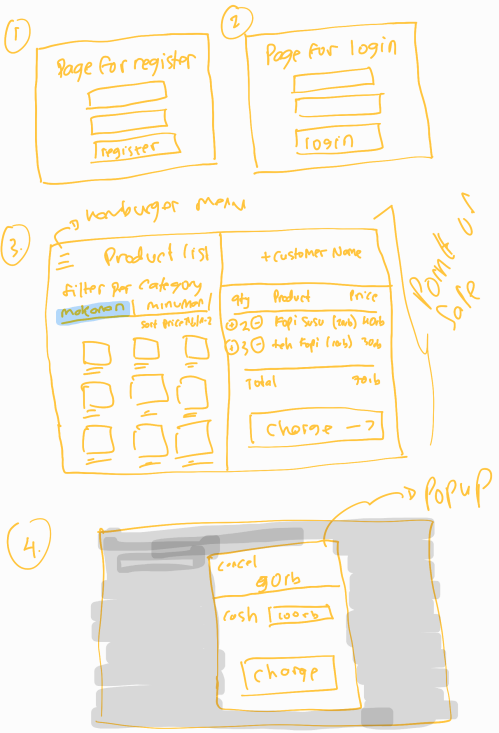 1.
Page for register
register
2
Page for login
login
3.
hamburger menu
Product list
filter per category
makanan
minuman
+ Customer Name
qty Product Price
+ 2 - Kopi Susu (20rb) 40rb
+ 3 - teh Kopi (10rb) 30rb
Total 90rb
Charge →
Point of Sale
4.
Popup
cancel
90rb
cash 100rb
Charge